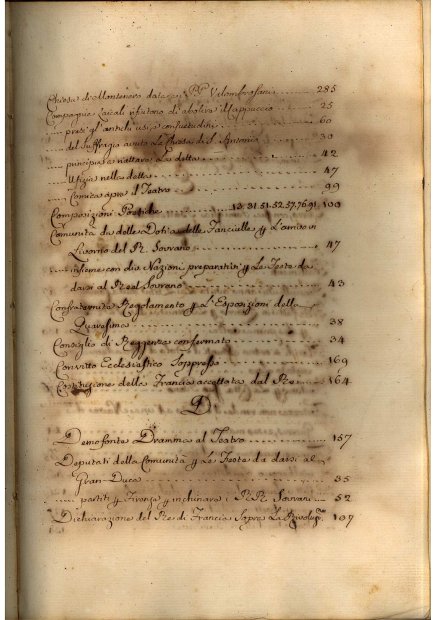 Chiesa di Montenero data ai PP. Vilombrosani ....... 285
Compagnie Laicali rifiutono di abolire il Cappuccio ..... 25
..... presi gl'antichi usi, e consuetudini ......... 60
..... del Suffragio avuto La Chiesa di S. Antonio ..... 30
..... principiara riattare La detta ............ 42
..... Ufizia nella detta ............... 47
..... Comica apre il Teatro ............ 99
Composizioni Poetiche ........ 13. 31. 51. 52. 57. 76. 91. 100
Comunità dà delle Doti a delle Fanciulle p L'arrivo in
Livorno del R. Sovrano ............ 47
..... insieme con die Nazioni preparativi p Le Feste da
darsi al Real Sovrano ............ 43
Confraternita Regolamento p L'Esposizioni della
Quaresima ............ 38
Consiglio di Reggenza confermato ......... 34
Convitto Ecclesiastico Soppresso ......... 169
Costituzione della Francia accettata dal Re ..... 164
D
Demofonte Dramma al Teatro ............ 157
Deputati della Comunità p Le Feste da darsi al
Gran-Duca ............ 35
..... partiti p Firenze p inchinare i RR. Sovrani ..... 52
Dichiarazione del Re di Francia Sopra La Rivoluz. 107